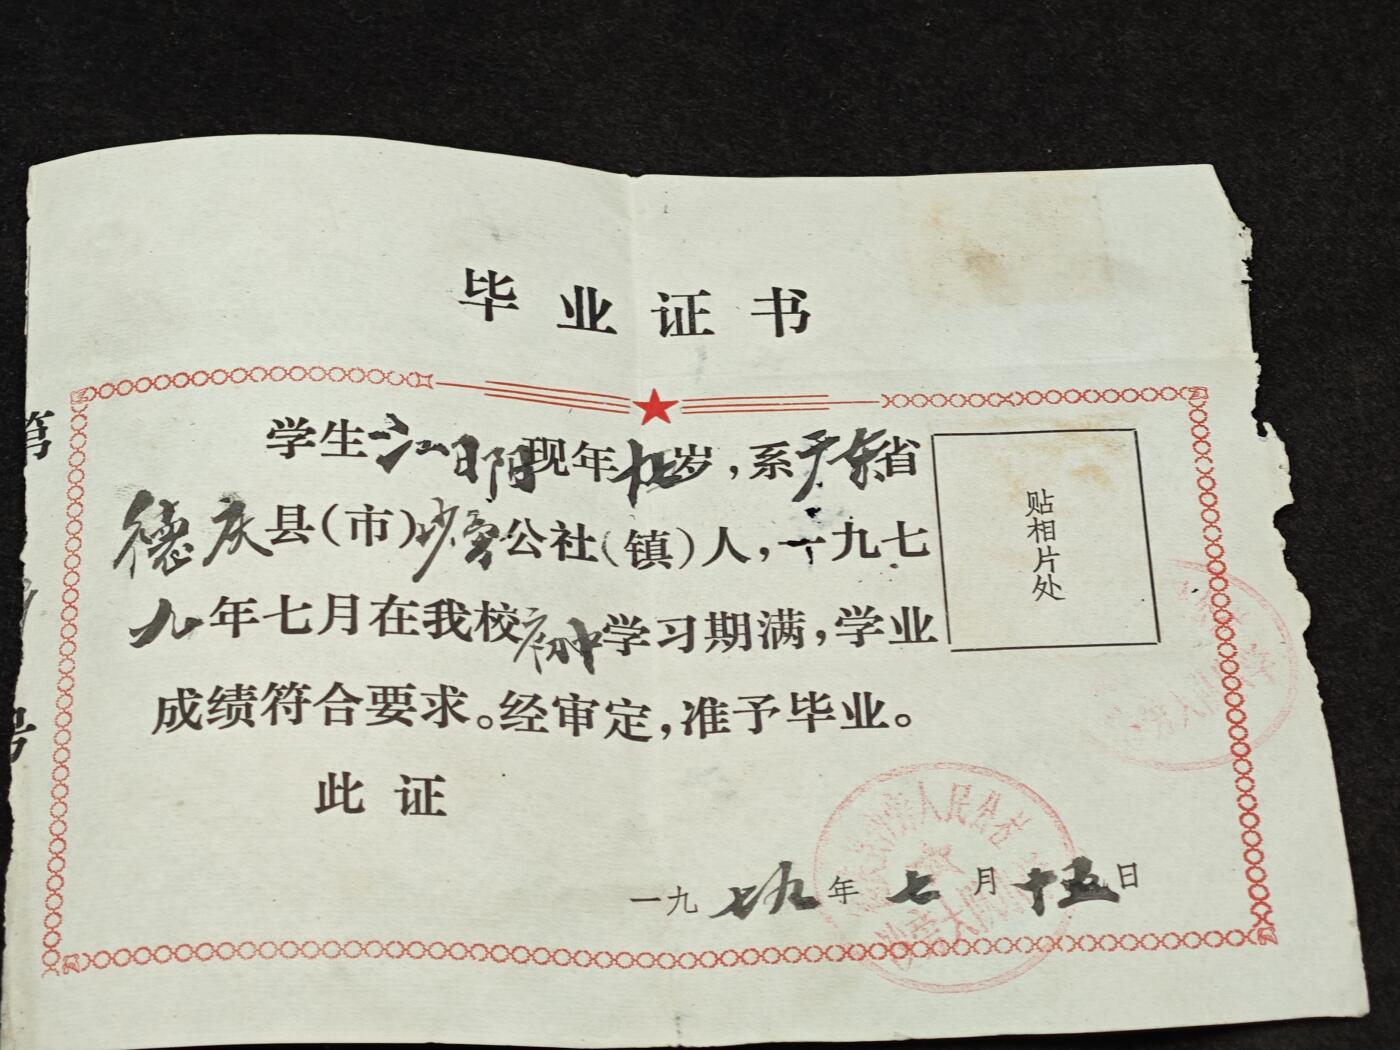 毕业证书
学生江日阳现年 岁，系广东省
德庆县（市）沙旁公社（镇）人，一九七
九年七月在我校初中学习期满，学业
成绩符合要求。经审定，准予毕业。
此证
一九七九年七月十五日
贴相片处
第
号
人民公社